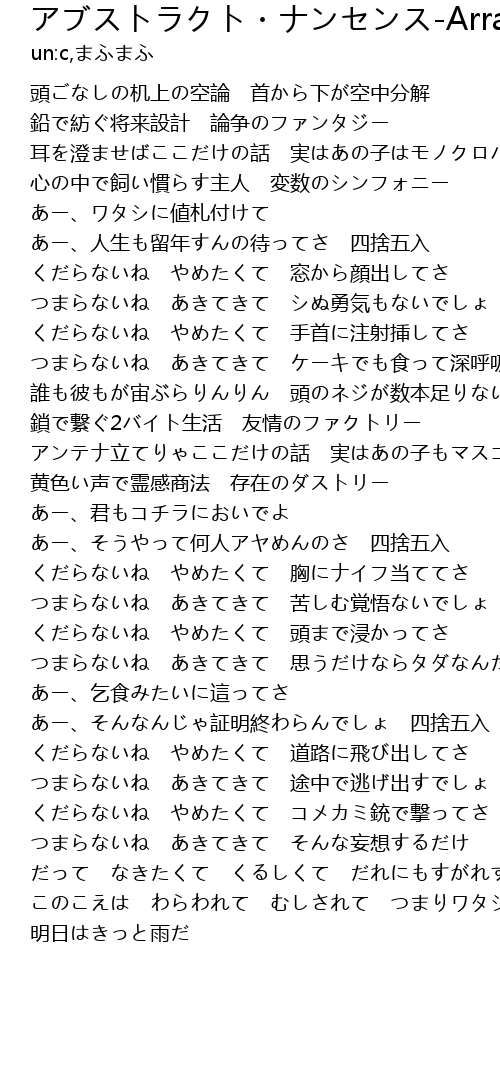 アブストラクト・ナンセンス-Arra
un:c,まふまふ
頭ごなしの机上の空論　首から下が空中分解
鉛で紡ぐ将来設計　論争のファンタジー
耳を澄ませばここだけの話　実はあの子はモノクロ
心の中で飼い慣らす主人　変数のシンフォニー
あー、ワタシに値札付けて
あー、人生も留年すんの待ってさ　四捨五入
くだらないね　やめたくて　窓から顔出してさ
つまらないね　あきてきて　シぬ勇気もないでしょ
くだらないね　やめたくて　手首に注射挿してさ
つまらないね　あきてきて　ケーキでも食って深呼吸
誰も彼もが宙ぶらりんりん　頭のネジが数本足りない
鎖で繋ぐ2バイト生活　友情のファクトリー
アンテナ立てりゃここだけの話　実はあの子もマス
黄色い声で霊感商法　存在のダストリー
あー、君もコチラにおいでよ
あー、そうやって何人アヤめんのさ　四捨五入
くだらないね　やめたくて　胸にナイフ当ててさ
つまらないね　あきてきて　苦しむ覚悟ないでしょ
くだらないね　やめたくて　頭まで浸かってさ
つまらないね　あきてきて　思うだけならタダなんだ
あー、乞食みたいに這ってさ
あー、そんなんじゃ証明終わらんでしょ　四捨五入
くだらないね　やめたくて　道路に飛び出してさ
つまらないね　あきてきて　途中で逃げ出すでしょ
くだらないね　やめたくて　コメカミ銃で撃ってさ
つまらないね　あきてきて　そんな妄想するだけ
だって　なきたくて　くるしくて　だれにもすがれず
このこえは　わらわれて　むしされて　つまりワタシ
明日はきっと雨だ